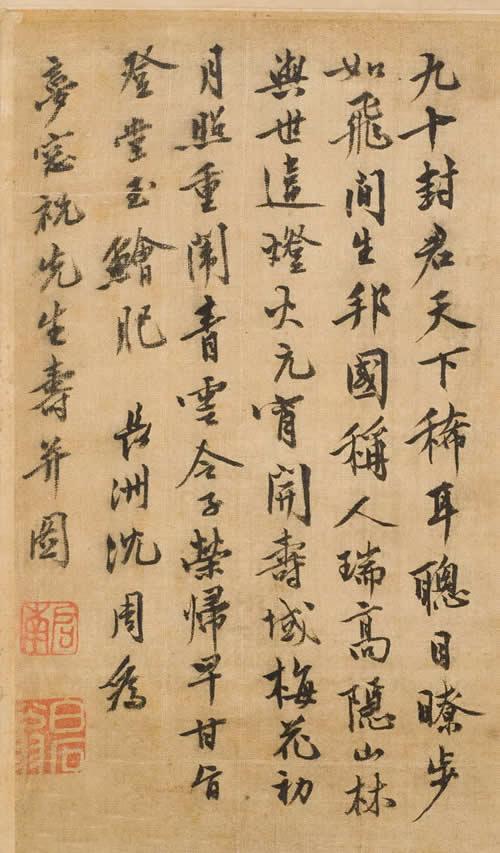 九十封君天下稀耳聰目瞭步
如飛間生邦國稱人瑞高隱山林
與世違燈火元宵開壽域梅花初
月照重闈青雲令子榮歸早甘旨
登堂玉鱠肥 長洲沈周為
夢窓祝先生壽并圖
啟南
白石翁